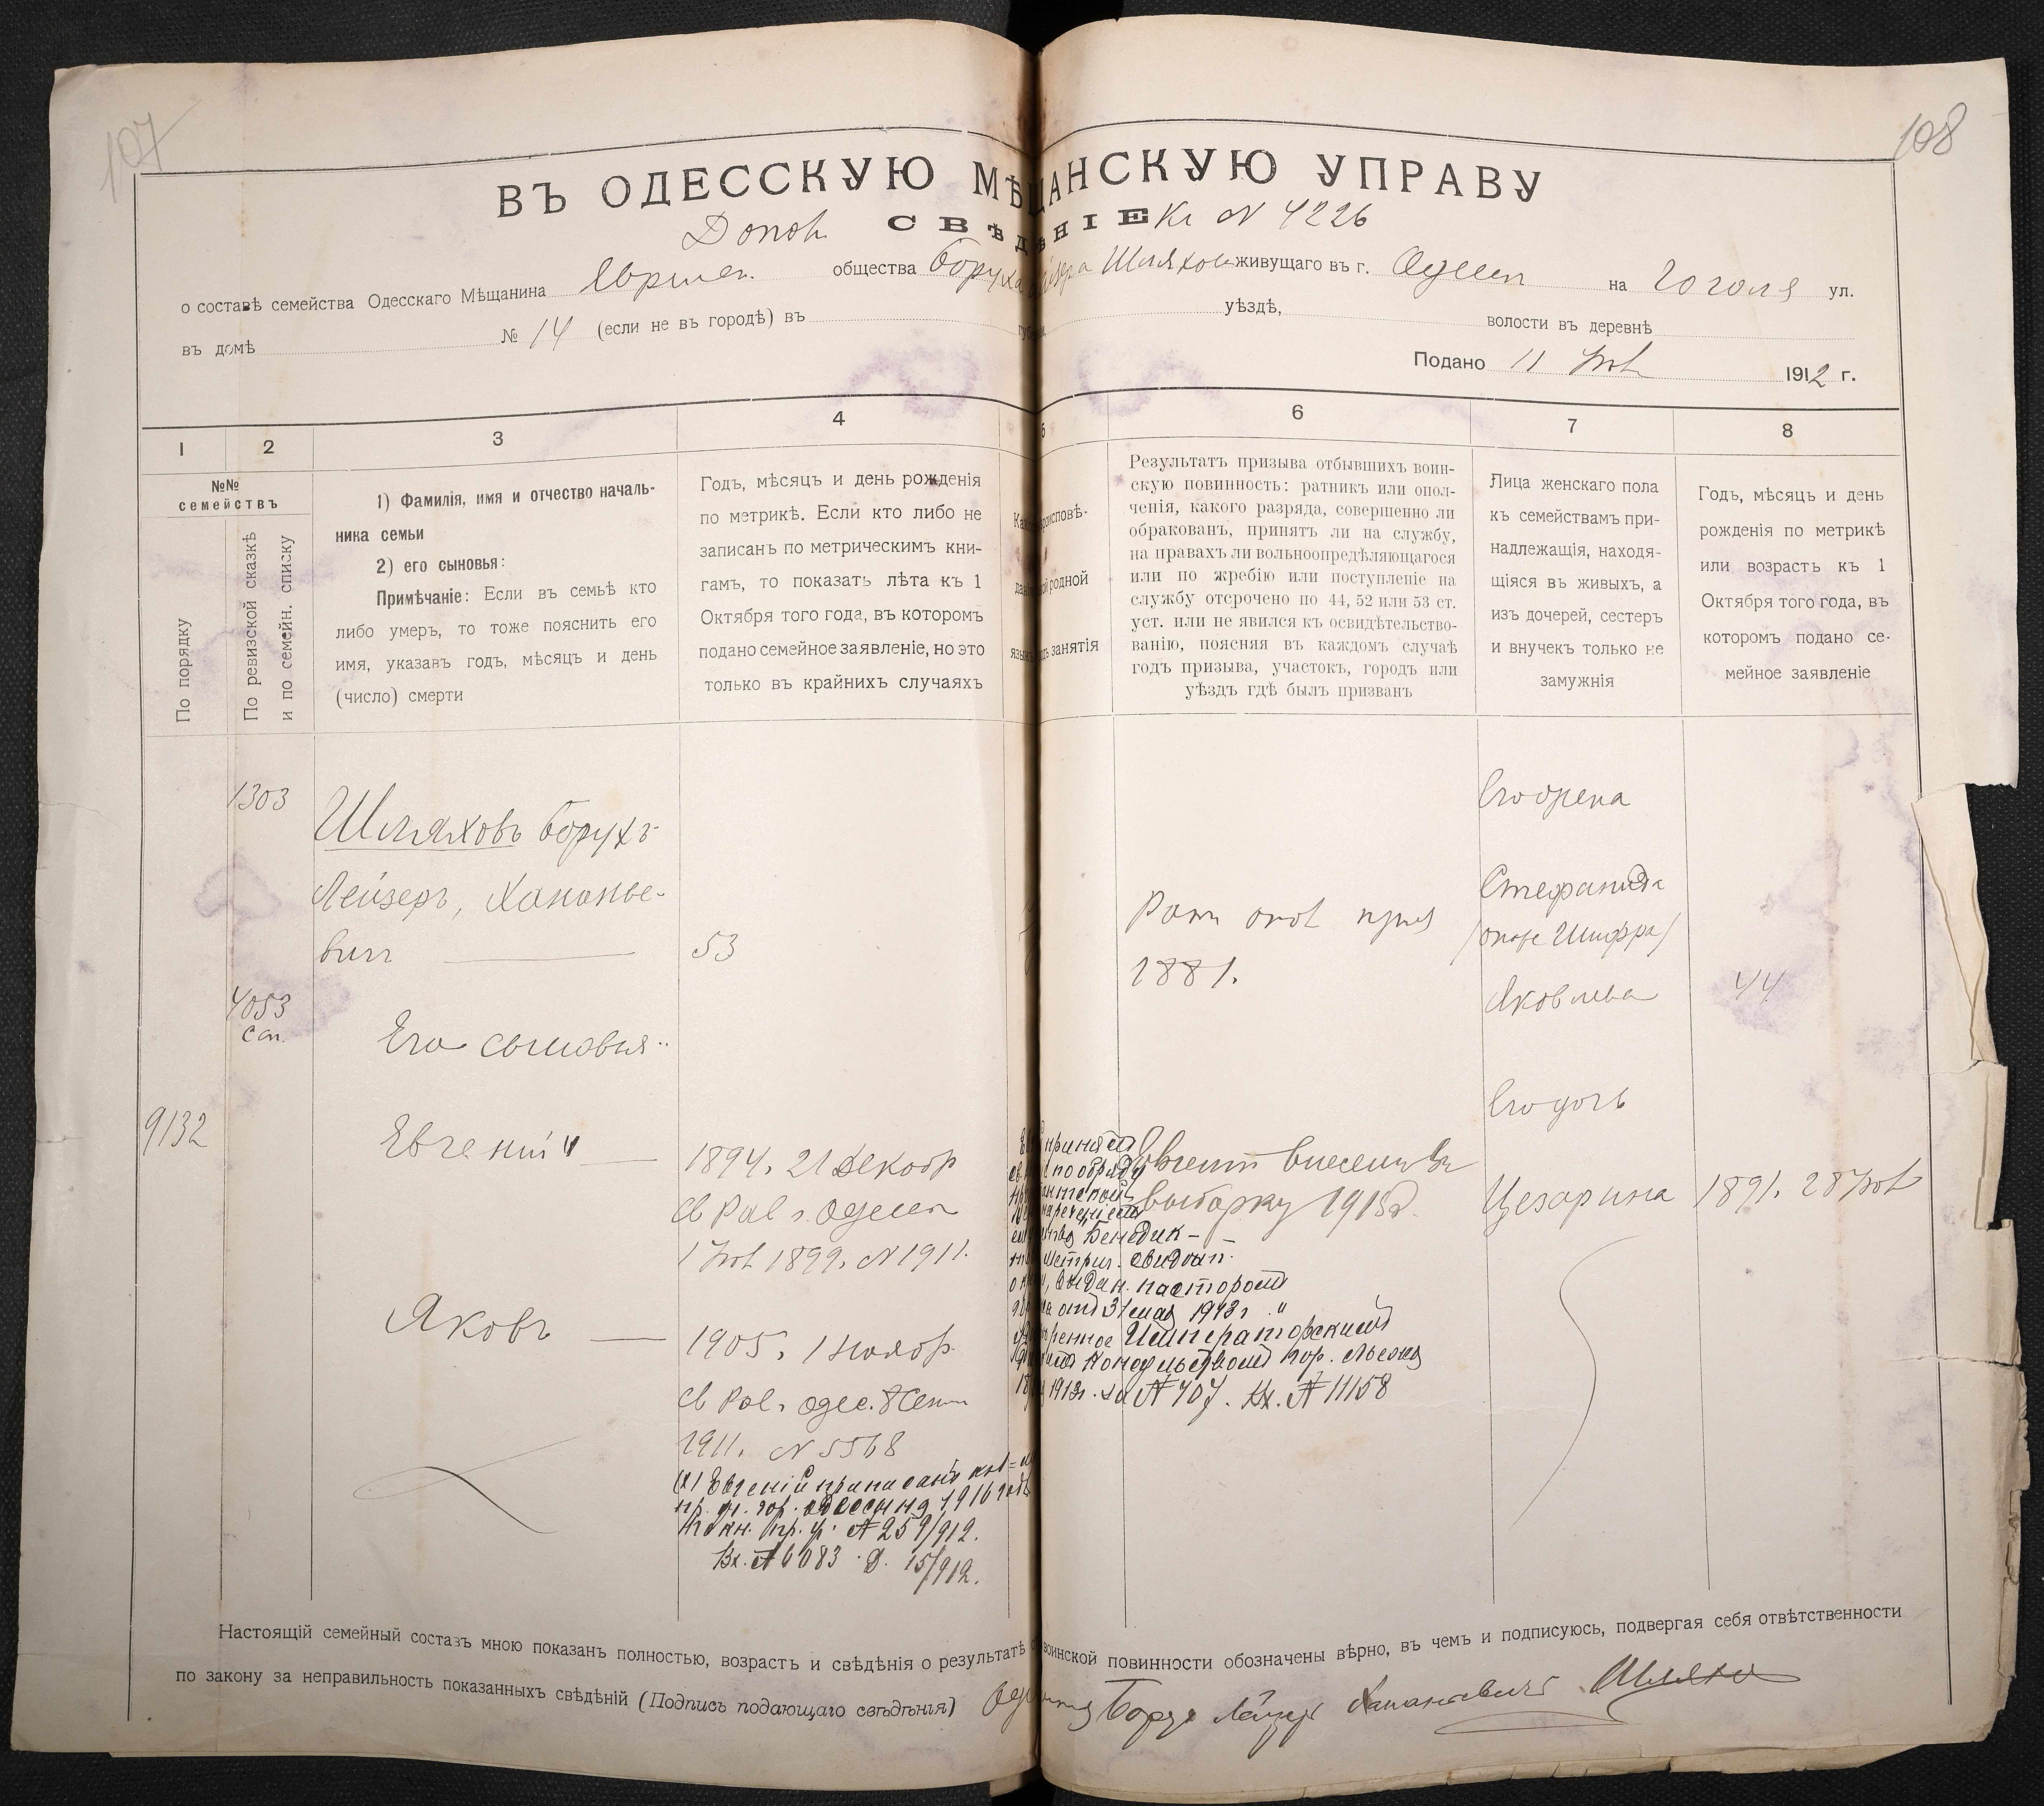 107
108
ВЪ ОДЕССКУЮ МѢЩАНСКУЮ УПРАВУ
СВѢДѢНІЕ
Допол Къ № 4226
о составѣ семейства Одесскаго Мѣщанина Еврейск. общества Боруха Лейзера Шляхова живущаго въ г. Одессѣ на Гоголя ул.
въ домѣ № 14 (если не въ городѣ) въ губерніи уѣздѣ, волости въ деревнѣ
Подано 11 1912 г.
1
2
3
4
5
6
7
8
№№
семействъ
По порядку
По ревизской сказкѣ
и по семейн. списку
1) Фамилія, имя и отчество началь-
ника семьи
2) его сыновья:
Примѣчаніе: Если въ семьѣ кто
либо умеръ, то тоже пояснить его
имя, указавъ годъ, мѣсяцъ и день
(число) смерти
Годъ, мѣсяцъ и день рожденія
по метрикѣ. Если кто либо не
записанъ по метрическимъ кни-
гамъ, то показать лѣта къ 1
Октября того года, въ которомъ
подано семейное заявленіе, но это
только въ крайнихъ случаяхъ
родной
занятія
Результатъ призыва отбывшихъ воин-
скую повинность: ратникъ или опол-
ченія, какого разряда, совершенно ли
обракованъ, принятъ ли на службу,
на правахъ ли вольноопредѣляющагося
или по жребію или поступленіе на
службу отсрочено по 44, 52 или 53 ст.
уст. или не явился къ освидѣтельство-
ванію, поясняя въ каждомъ случаѣ
годъ призыва, участокъ, городъ или
уѣздъ гдѣ былъ призванъ
Лица женскаго пола
къ семействамъ при-
надлежащія, находя-
щіяся въ живыхъ, а
изъ дочерей, сестеръ
и внучекъ только не
замужнія
Годъ, мѣсяцъ и день
рожденія по метрикѣ
или возрастъ къ 1
Октября того года, въ
которомъ подано се-
мейное заявленіе
1303
Шляховъ Борухъ
Лейзеръ, Хананье-
вичъ 53
4053
Сп.
Его сыновья:
9132
Евгеній
1894. 21 Декабр
св Рав г. Одессы
1899. № 1911.
Яковъ
1905. 1 Ноябр
св Рав г. Одес. 8 Сент
1911. № 5568
(х) Евгеній приписанъ
пр. уч. гор. Одессы на 1916 годъ
№ 259/912.
Вх. № 6083 Д. 15/912.
принялъ
по обряду
нареченіемъ
Бенедик-
Метрич. свидѣт.
выдан. пасторомъ
отъ 31 мая 1913 г.
Императорскимъ
Консульствомъ
1913 г. за № 707. Вх. № 11158
Ратн опол приз
1881.
Евгеній внесенъ въ
выборку 1915 г.
Его жена
Стефанида
/она же Шифра/
Яковлева 44
Его дочь
Цезарина 1891. 28
Настоящій семейный составъ мною показанъ полностью, возрастъ и свѣдѣнія о результатѣ воинской повинности обозначены вѣрно, въ чемъ и подписуюсь, подвергая себя отвѣтственности
по закону за неправильность показанныхъ свѣдѣній (Подпись подающаго свѣдѣнія) Борухъ Лейзеръ Хананьевичъ Шляховъ